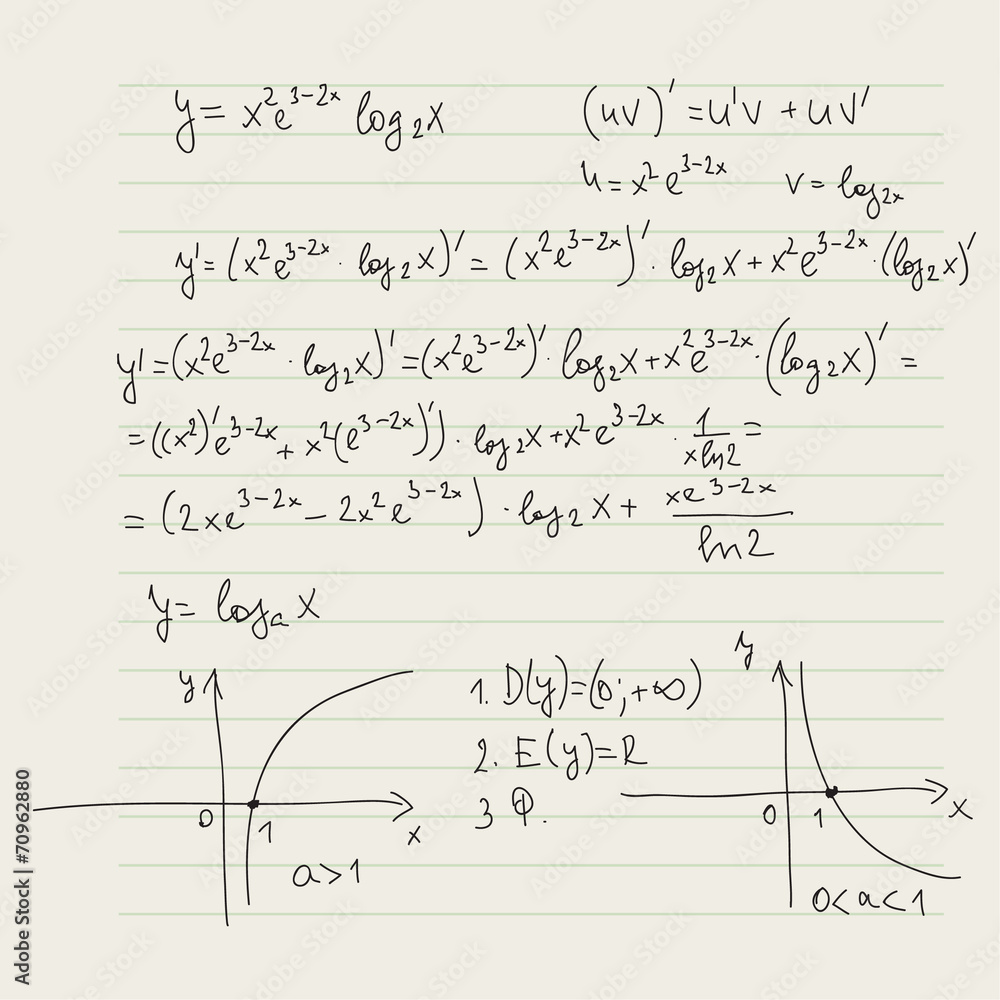 y = x²e³⁻²ˣ log₂x (uv)' = u'v + uv'
u = x²e³⁻²ˣ v = log₂ₓ
y' = (x²e³⁻²ˣ · log₂x)' = (x²e³⁻²ˣ)' · log₂x + x²e³⁻²ˣ · (log₂x)'
y' = (x²e³⁻²ˣ · log₂x)' = (x²e³⁻²ˣ)' · log₂x + x²e³⁻²ˣ · (log₂x)' =
= ((x²)'e³⁻²ˣ + x²(e³⁻²ˣ)') · log₂x + x²e³⁻²ˣ · 1/(x ln2) =
= (2xe³⁻²ˣ − 2x²e³⁻²ˣ) · log₂x + xe³⁻²ˣ/ln2
y = logₐx
y
0
1
x
a > 1
1. D(y) = (0; +∞)
2. E(y) = R
3 Φ.
y
0
1
x
0 < a < 1
Adobe Stock | #70962880